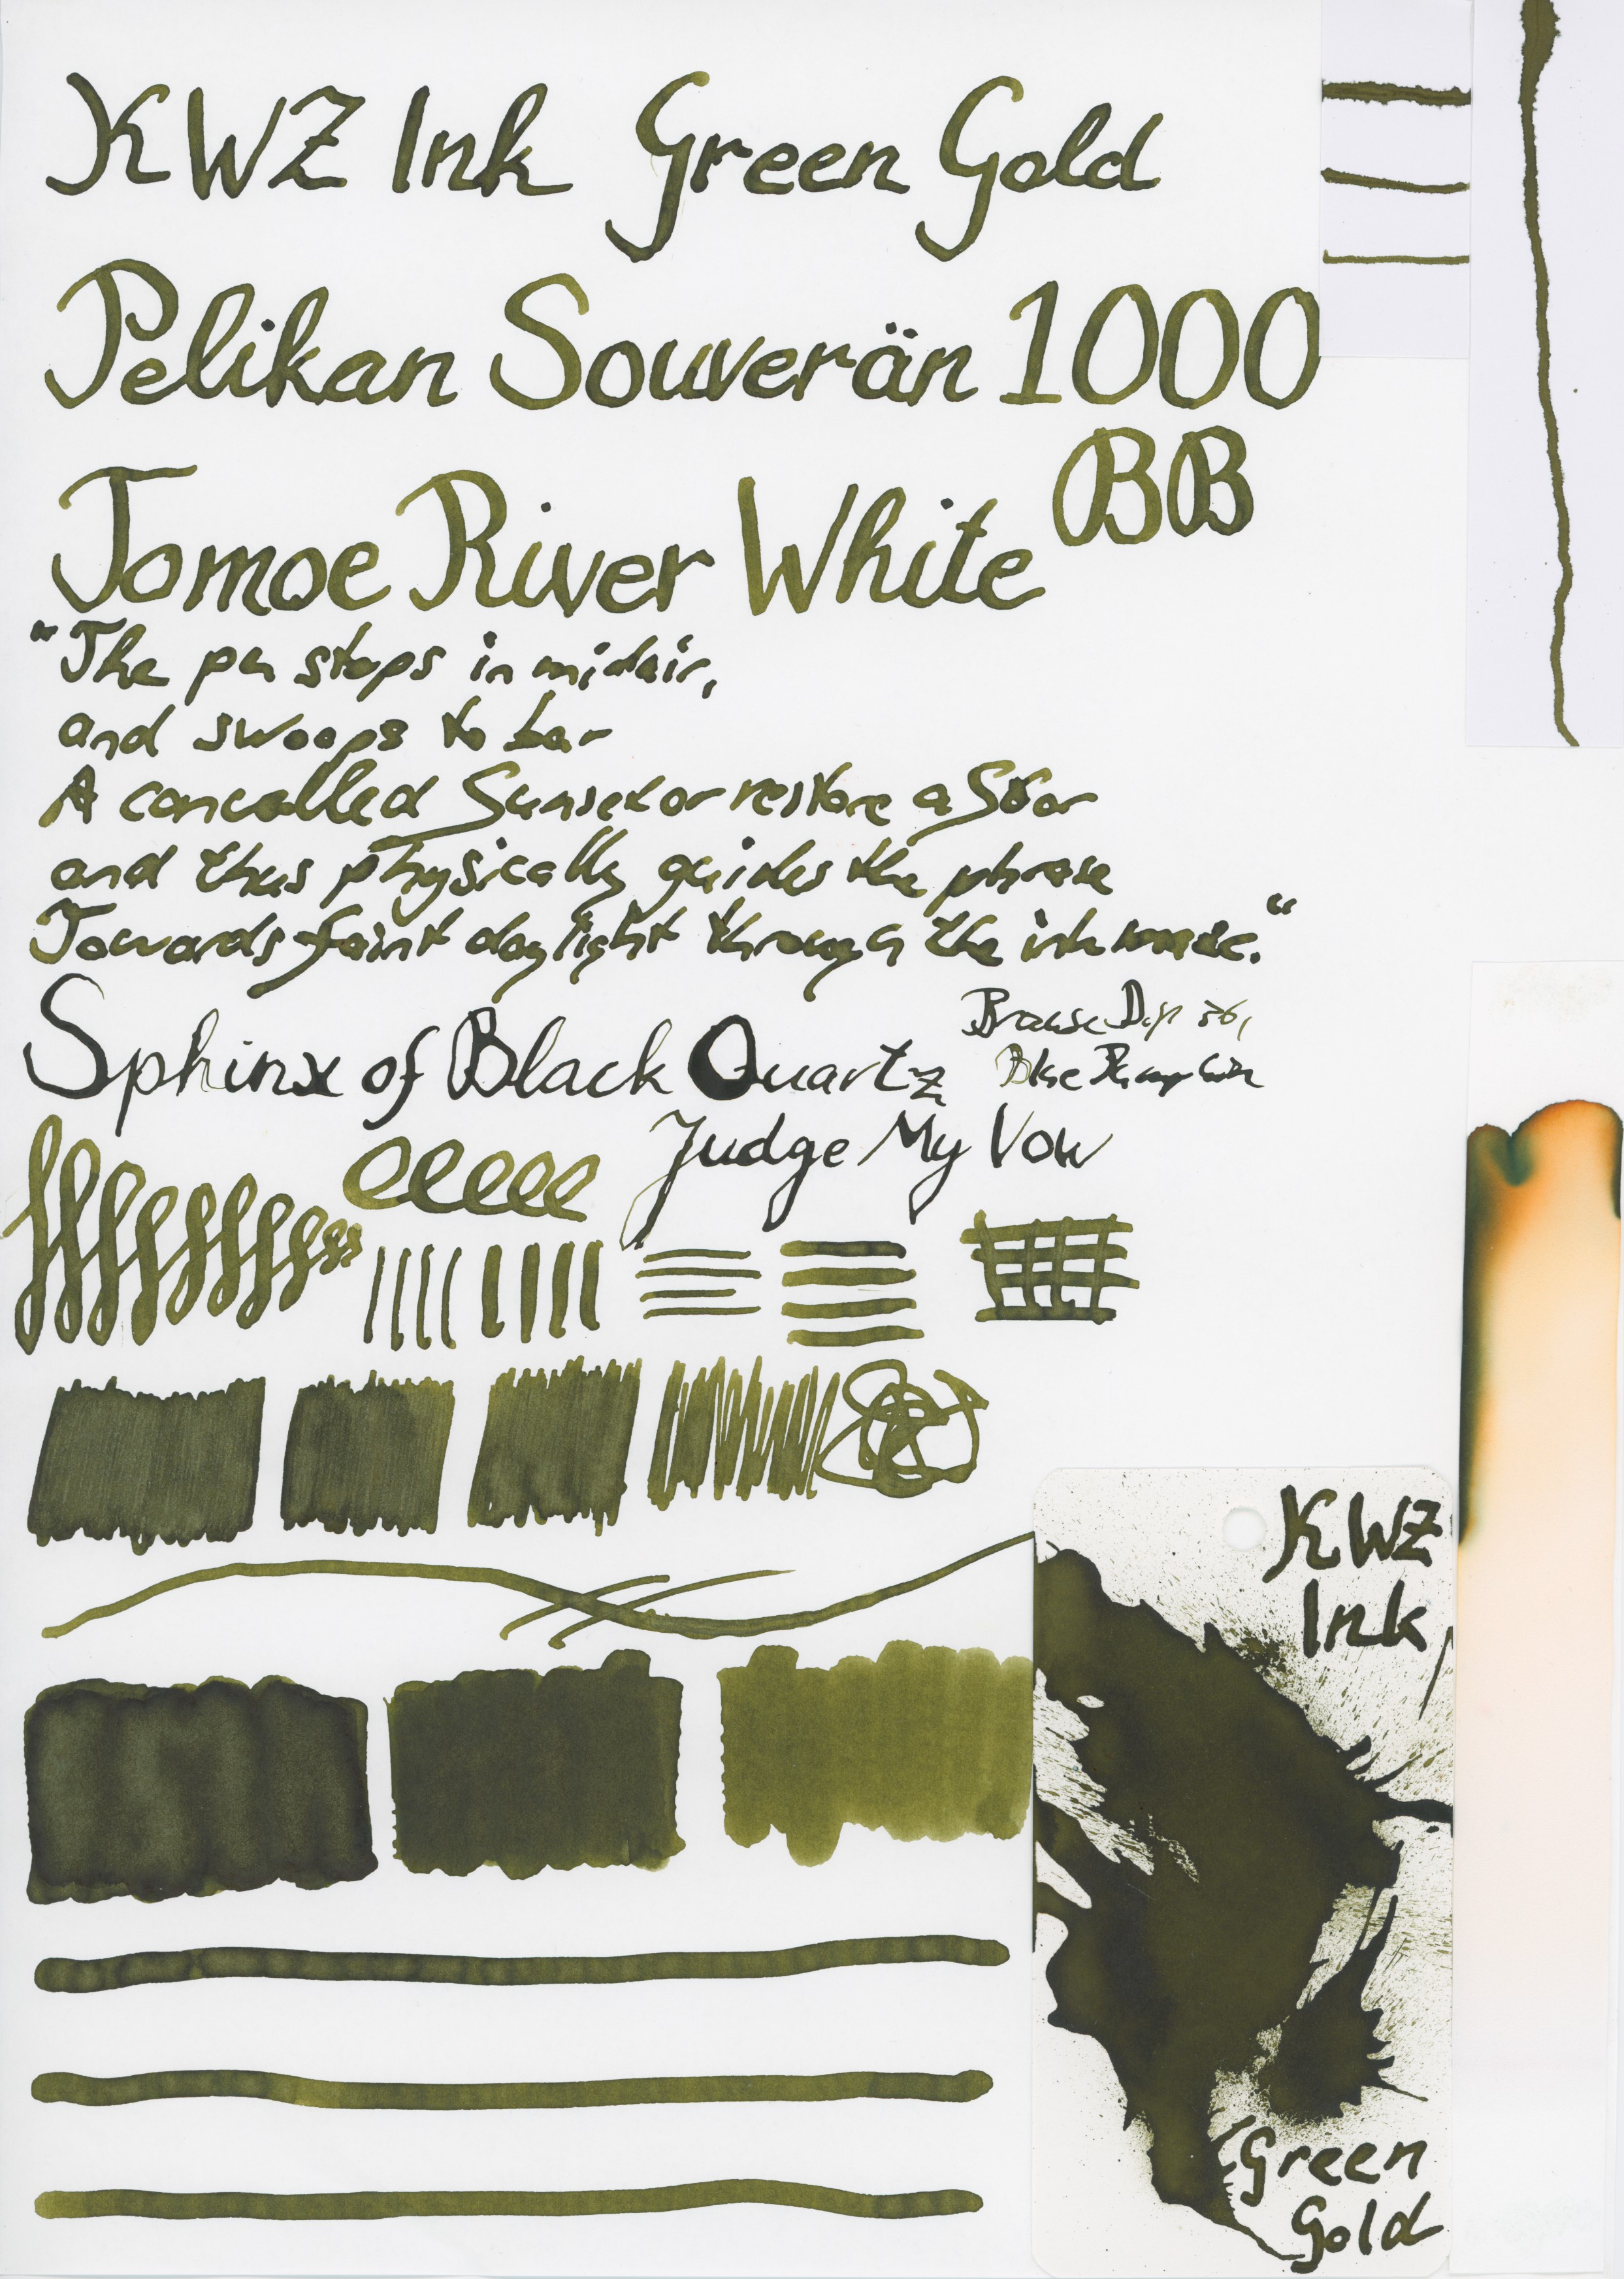 KWZ Ink Green Gold
Pelikan Souverän 1000
BB
Tomoe River White
"The pen stops in midair,
and swoops to bar
A cancelled Sunset or restore a Star
and thus physically guides the phrase
Towards faint daylight through the ink
Sphinx of Black Quartz
Brause Dip 361
Blue Pumpkin
Judge My Vow
KWZ
Ink
Green
Gold